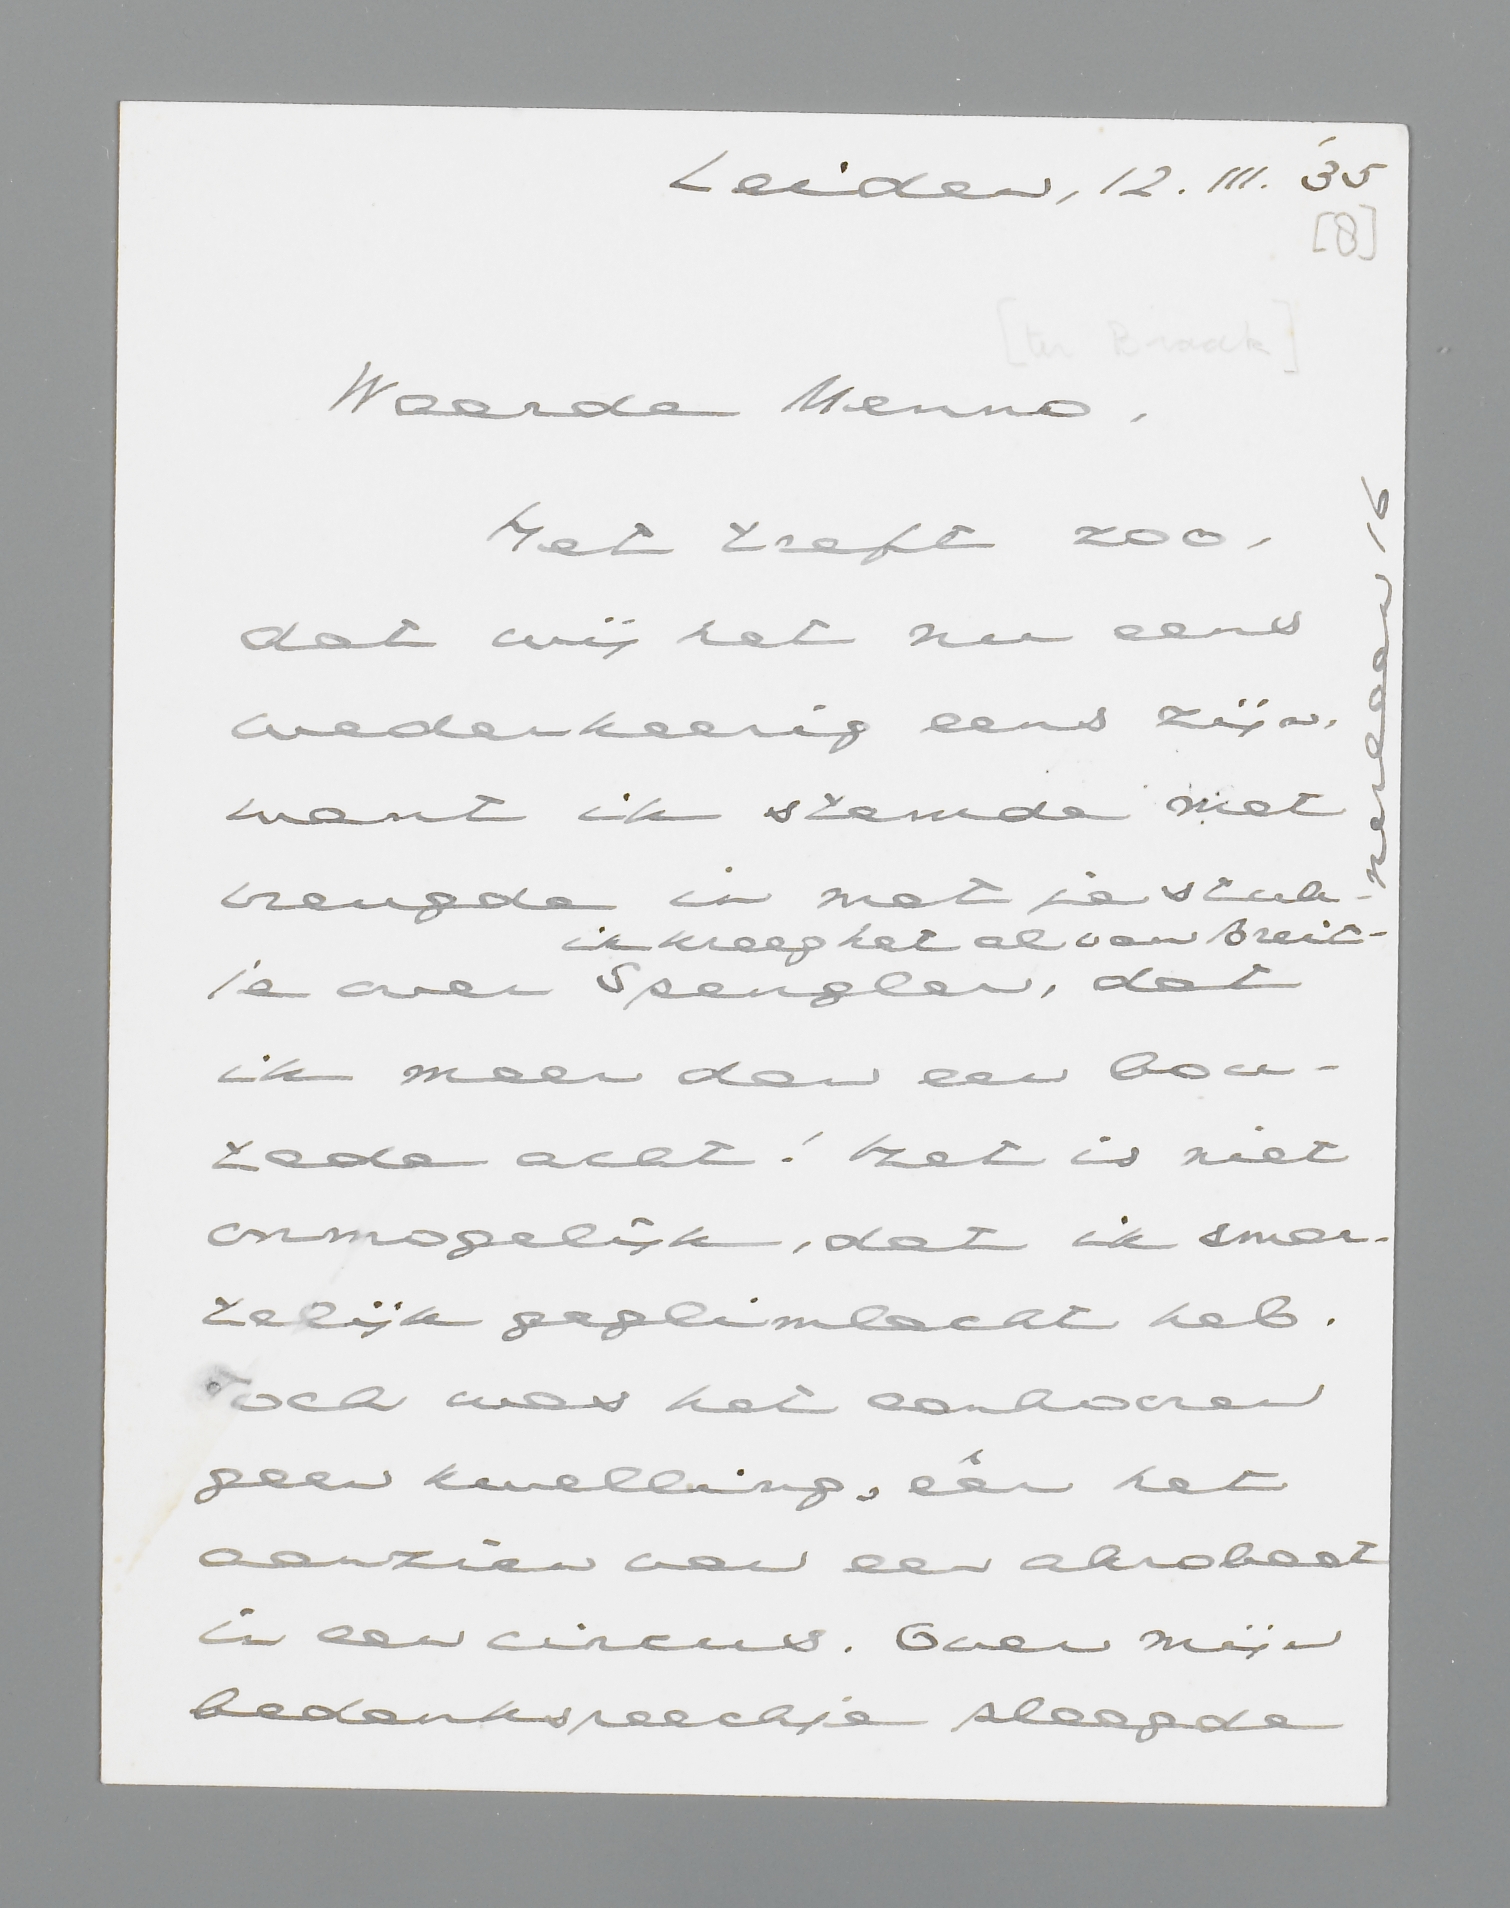 Leiden, 12. III. '35
[8]
[ter Braak]
Waarde Menno,
Het treft zoo,
dat wij het nu eens
wederkeerig eens zijn,
want ik stemde met
vreugde in met je stuk-
ik kreeg het al van Breit-
je over Spengler, dat
ik meer dan een bou-
tade acht! Het is niet
onmogelijk, dat ik smar-
telijk geglimlacht heb.
Toch was het aanhooren
geen kwelling, eêr het
aanzien van een akrobaat
in een circus. Over mijn
bedankspeechje slaagde
16